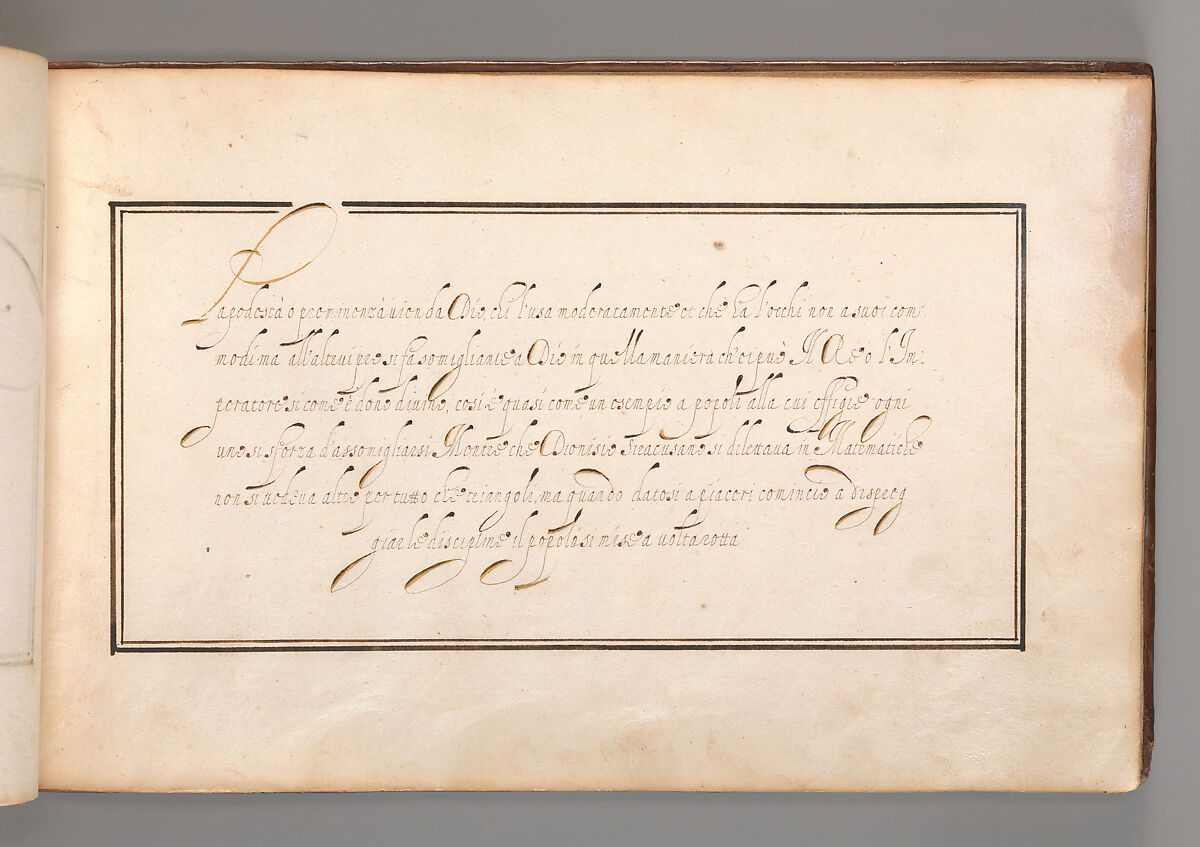 La podestà o preminenza vien da Dio, chi l'usa moderatamente et che ha l'occhi non a suoi com-
modi ma all'altrui pro si fa somigliante a Dio in quella maniera ch'ei può Il Re o l'Im-
peratore si come è dono divino, così é quasi come un esempio a popoli alla cui effigie ogni
uno si sforza d'assomigliarsi Monte che Dionisio siracusano si dilettava in Matematiche
non si vedeva altro per tutto che triangoli, ma quando datosi a piaceri comincio a dispreg
giar le discipline il popolo si mise a volta rotta